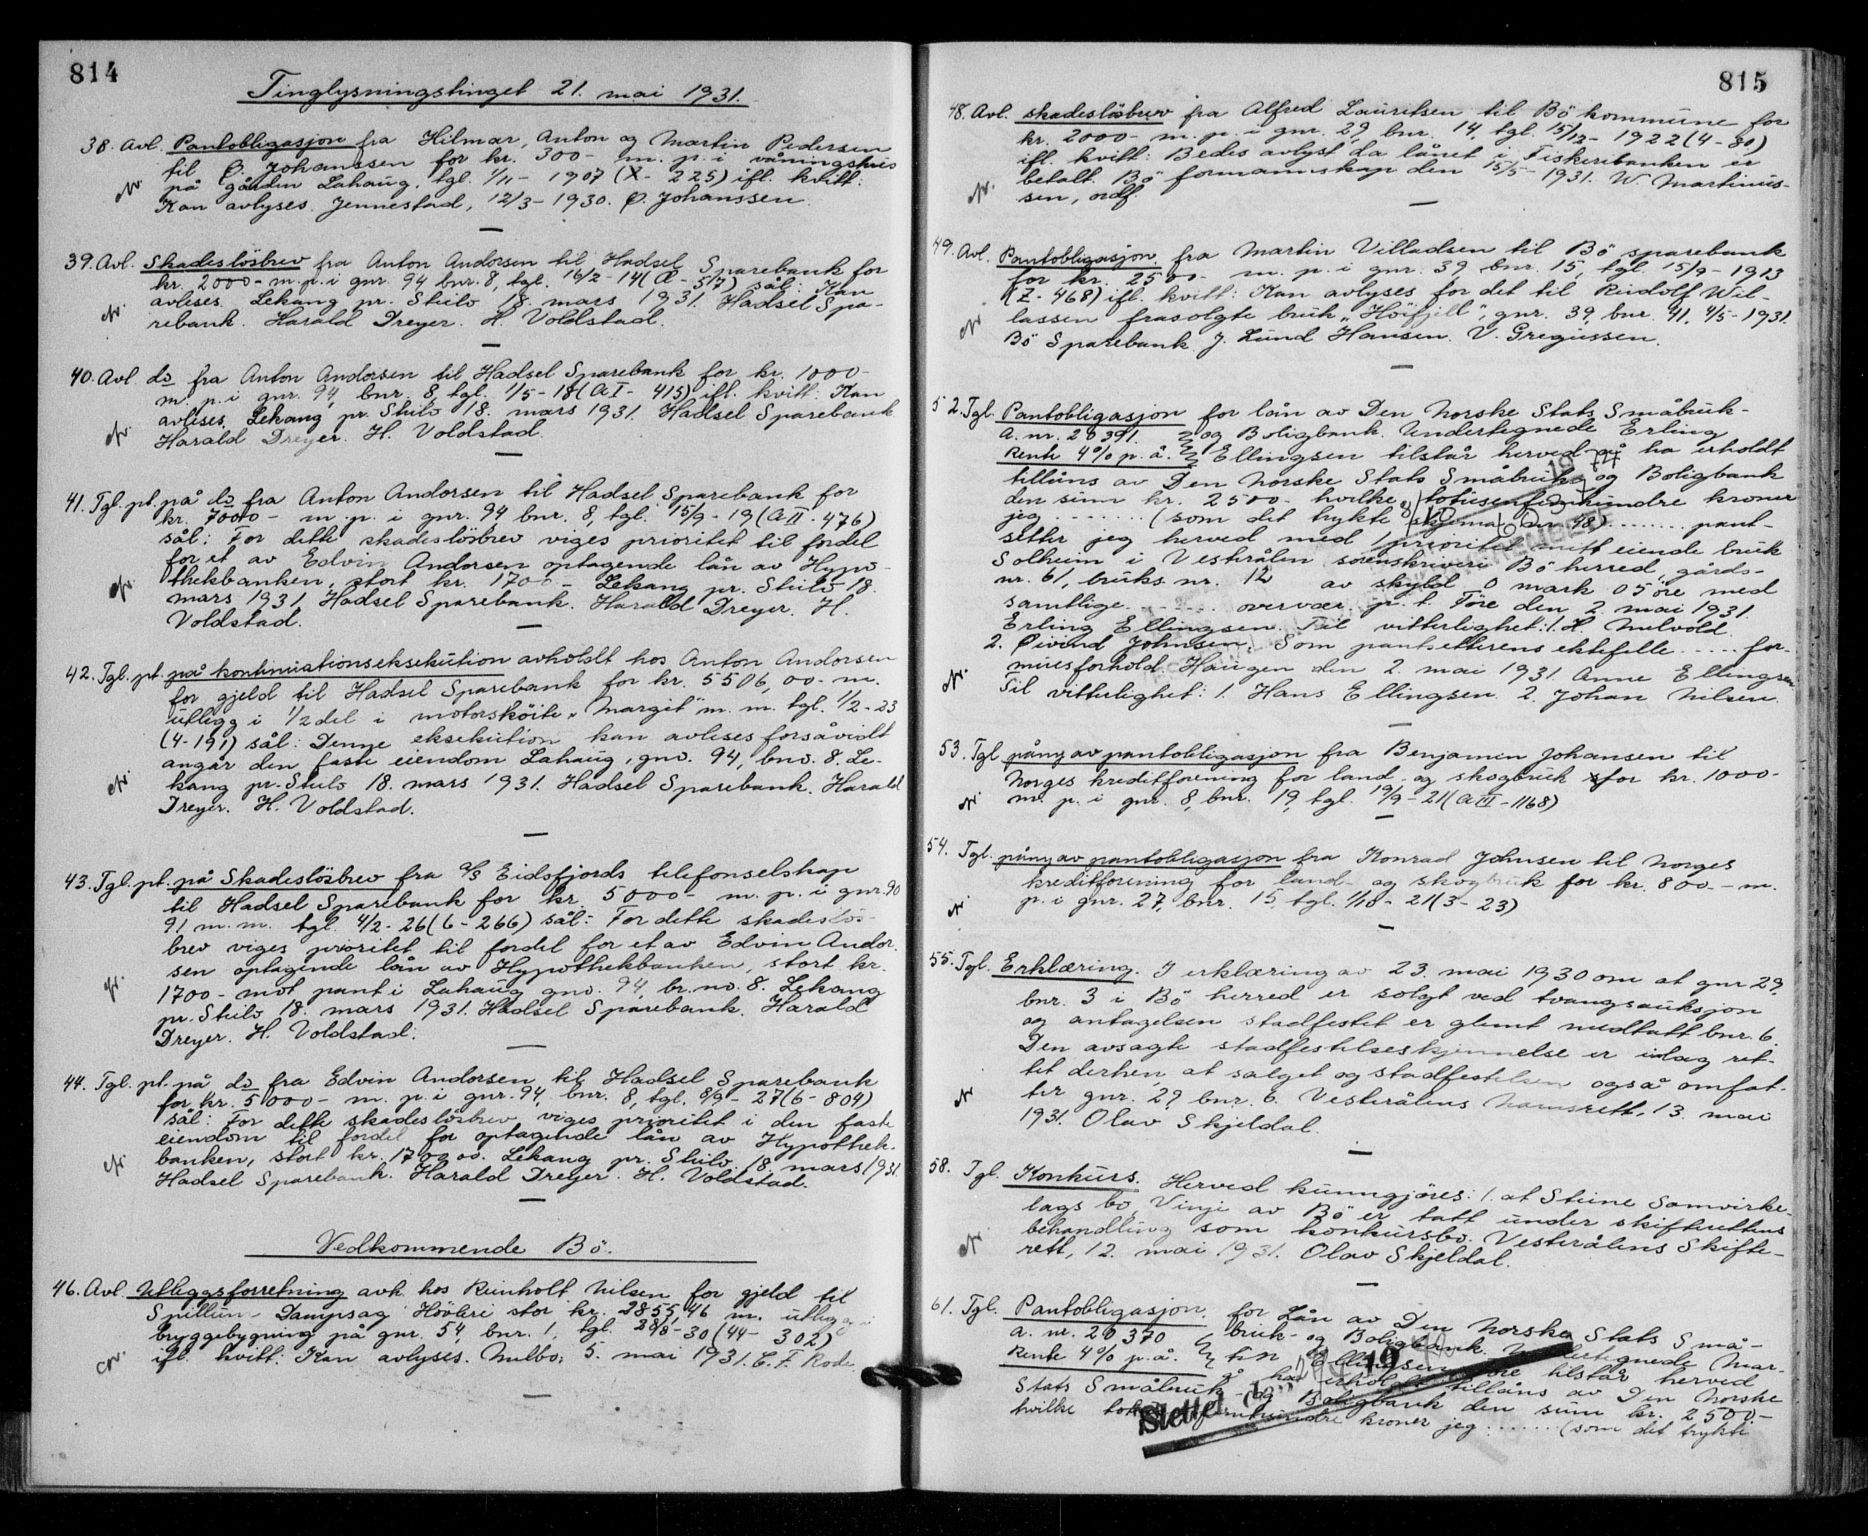 814
Tinglysningstinget 21. mai 1931.
38. Avl. Pantobligasjon fra Hilmar, Anton og Martin Pedersen
til Ø. Johanssen for kr. 300- m. p. i våningshus
på gården Lahaug, tgl. 1/11- 1907 (X- 225) ifl. kvitt:
Kan avlyses. Jennestad, 12/3- 1930. Ø. Johanssen.
39. Avl. Skadesløsbrev fra Anton Andorsen til Hadsel Sparebank for
kr. 2000- m. p. i gnr. 94 bnr. 8, tgl. 16/2- 14 (Æ- 517) sål: Kan
avleses. Lekang pr. Stulo 18. mars 1931. Hadsel Spa-
rebank. Harald Dreyer. H. Voldstad.
40. Avl. do fra Anton Andorsen til Hadsel Sparebank for kr. 1000-
m. p. i gnr. 94, bnr. 8, tgl. 1/5- 18 (AI- 415) ifl. kvitt: Kan
avleses. Lekang pr. Stulo 18. mars 1931. Hadsel Sparebank
Harald Dreyer. H. Voldstad.
41. Tgl. pt. på do fra Anton Andorsen til Hadsel Sparebank for
kr. 7000- m. p. i gnr. 94 bnr. 8, tgl. 15/9- 19 (AII- 476)
sål: For dette skadesløsbrev viges prioritet til fordel
for et av Edvin Andorsen optagende lån av Hypo-
thekbanken, stort kr. 1700- Lekang pr. Stulo 18.
mars 1931. Hadsel Sparebank. Harald Dreyer. H.
Voldstad.
42. Tgl. pt. på kontinuationseksekution avholdt hos Anton Andorsen
for gjeld til Hadsel Sparebank for kr. 5506,00- m.
utlegg i 1/2 del i motorskøite "Margit" m. m. tgl. 1/2- 23
(4- 191) sål: Denne eksekution kan avleses forsåvidt
angår den faste eiendom Lahaug, gno. 94, bno. 8. Le-
kang pr. Stulo 18. mars 1931. Hadsel Sparebank. Harald
Dreyer. H. Voldstad.
43. Tgl. pt. på Skadesløsbrev fra a/s Eidsfjords telefonselskap
til Hadsel Sparebank for kr. 5000- m. p. i gnr. 90
91 m. m. tgl. 4/2- 26 (6- 266) sål: For dette skadesløs-
brev viges prioritet til fordel for et av Edvin Andor-
sen optagende lån av Hypothekbanken, stort kr.
1700- mot pant i Lahaug gno. 94, br. no. 8. Lekang
pr. Stulo 18. mars 1931. Hadsel Sparebank. Harald
Dreyer. H. Voldstad.
44. Tgl. pt. på do fra Edvin Andorsen til Hadsel Sparebank
for kr. 5000- m. p. i gnr. 94, bnr. 8, tgl. 8/9- 27 (6- 804)
sål: For dette skadesløsbrev viges prioritet i den faste
eiendom til fordel for optagende lån av Hypothek-
banken, stort kr. 1700,00. Lekang pr. Stulo 18. mars 1931.
Hadsel Sparebank. Harald Dreyer. H. Voldstad.
Vedkommende Bø.
46. Avl. Utleggsforretning avh. hos Reinholt Nilsen for gjeld til
Spillum Dampsag Høvleri stor kr. 2855,46 m. utlegg i
bryggebygning på gnr. 54, bnr. 1, tgl. 28/8- 30 (44- 302)
ifl. kvitt: Kan avlyses. Melbo, 5. mai 1931. C. F. Rode
815
48. Avl. skadesløsbrev fra Alfred Lauritsen til Bø kommune for
kr. 2000- m. p. i gnr. 29, bnr. 14, tgl. 15/12- 1922 (4- 80)
ifl. kvitt: Bedes avlyst da lånet i Fiskeribanken er
betalt. Bø formannskap den 15/5- 1931. W. Martinus-
sen, ordf.
49. Avl. Pantobligasjon fra Martin Villadsen til Bø sparebank
for kr. 2500- m. p. i gnr. 39 bnr. 15, tgl. 15/9- 1913
(Z- 468) ifl. kvitt: Kan avlyses for det til Rudolf Wil-
lassen frasolgte bruk "Høifjell", gnr. 39, bnr. 41, 4/5- 1931.
Bø Sparebank J. Lund Hansen. V. Gregussen.
52. Tgl. Pantobligasjon for lån av Den Norske Stats Småbruk-
A. nr. 20391. og Boligbank. Undertegnede Erling
Rente 4% p. å. Ellingsen tilstår herved å ha erholdt
tillåns av Den Norske Stats Småbruk og Boligbank
den sum kr. 2500- hvilke totusenfemhundre kroner
jeg ....... (som det trykte skjema ....... pant-
setter jeg herved med 1 prioritet mitt eiende bruk
Solheim i Vesterålen sorenskriveri Bø herred, gårds-
nr. 61, bruks nr. 12 av skyld 0 mark 05 øre med
samtlige ....... overvær. p. t. Føre den 2. mai 1931.
Erling Ellingsen. Til vitterlighet: 1. H. Melvold.
2. Øivind Johnsen. Som pantsetterens ektefelle ..... for-
muesforhold. Haugen den 2. mai 1931. Anne Ellingsen
Til vitterlighet: 1. Hans Ellingsen. 2. Johan Nilsen.
53. Tgl. påny av pantobligasjon fra Benjamin Johansen til
Norges kreditforening for land- og skogbruk for kr. 1000-
m. p. i gnr. 8, bnr. 19, tgl. 19/9- 21 (AIII- 1168)
54. Tgl. påny av pantobligasjon fra Konrad Johnsen til Norges
kreditforening for land- og skogbruk for kr. 800- m.
p. i gnr. 27, bnr. 15 tgl. 1/10- 21 (3- 23)
55. Tgl. Erklæring. I erklæring av 23. mai 1930 om at gnr. 29,
bnr. 3 i Bø herred er solgt ved tvangsauksjon
og antagelsen stadfestet er glemt medtatt bnr. 6.
Den avsagte stadfestelseskjennelse er idag ret-
tet derhen, at salget og stadfestelsen også omfat-
ter gnr. 29 bnr. 6. Vesterålens namsrett, 13. mai
1931. Olav Skjeldal.
58. Tgl. Konkurs. Herved kunngjøres: 1. at Steine Samvirke-
lags bo, Vinje av Bø er tatt under skifterettens
behandling som konkursbo. Vesterålens Skifte-
rett, 12. mai 1931. Olav Skjeldal.
61. Tgl. Pantobligasjon. for Lån av Den Norske Stats Små-
a. nr. 20370 bruk- og Boligbank. Undertegnede Mar-
Rente 4% p. å. tin Ellingsen Føre tilstår herved
å ha erholdt tillåns av Den Norske
Stats Småbruk- og Boligbank den sum kr. 2500-
hvilke totusenfemhundre kroner jeg ....... (som det trykte
Slettet 19